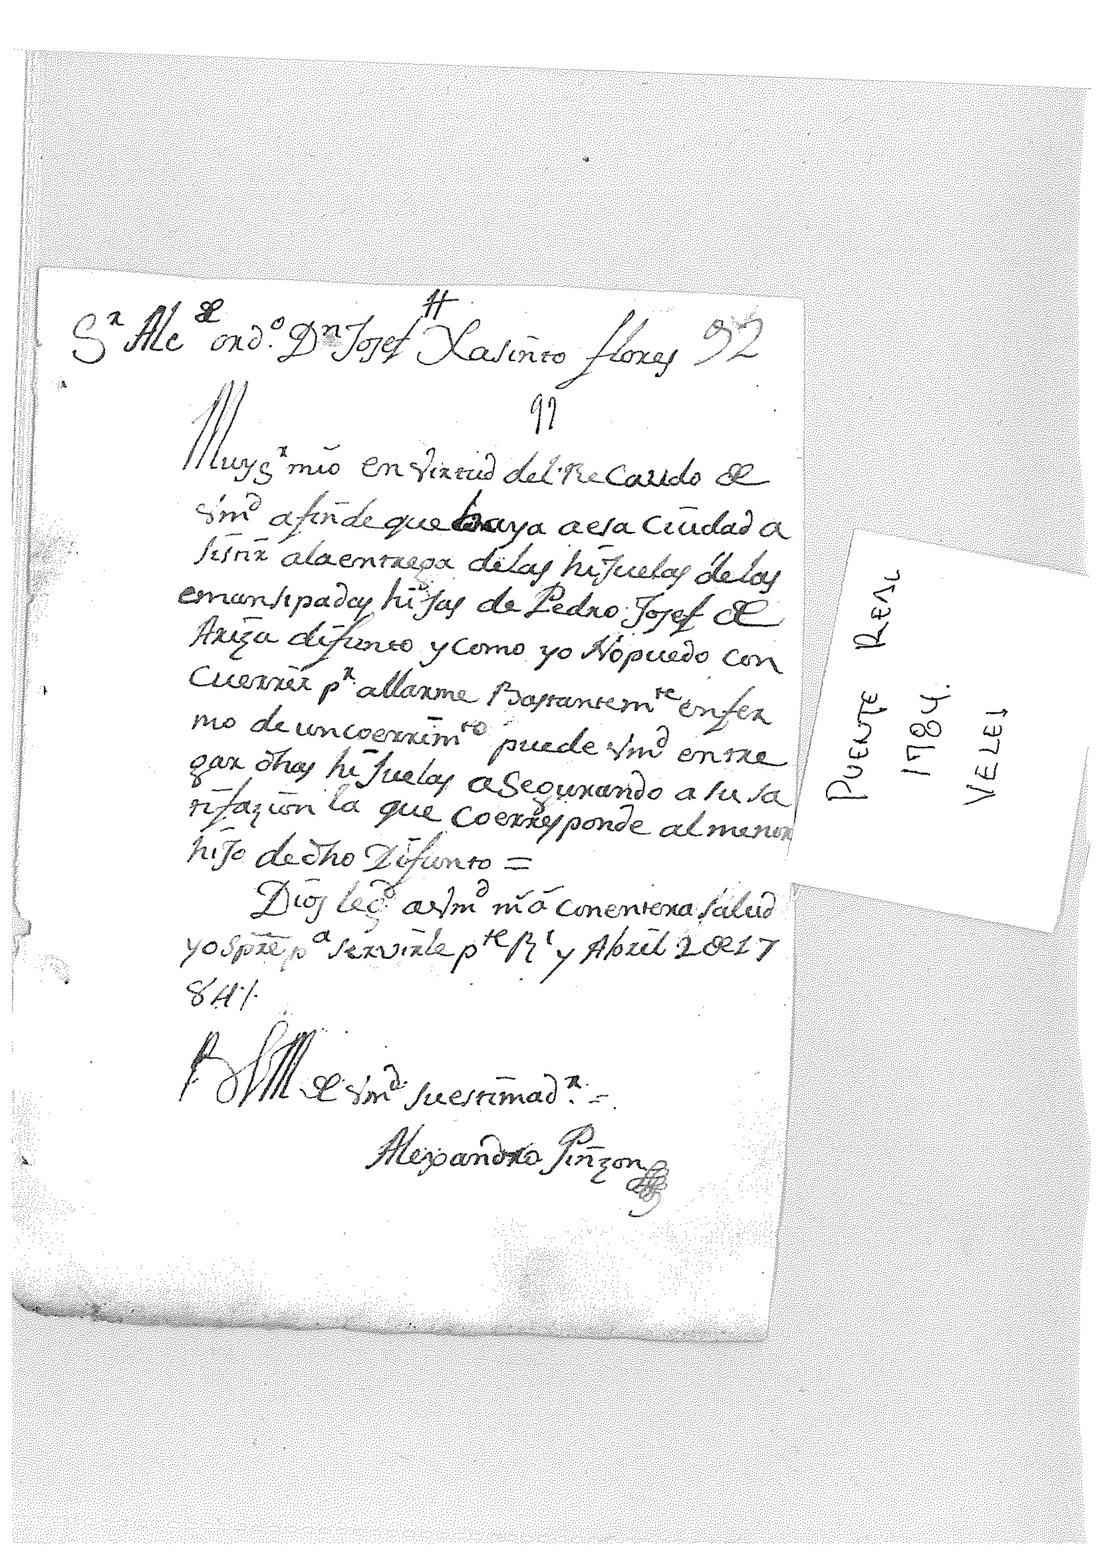 Sr Alc de ord.o Dn Josef Xasinto flores 92
92
Muy Sr mio en virtud del Recaudo de
Vmd afin de que baya a esa Ciudad a
sistir ala entrega delas hijuelas delas
emansipadas hijas de Pedro Josef de
Ariza difunto y como yo No puedo con
Cuerrir pr allarme Bastantemte enfer
mo de un coerrimto puede Vmd entre
gar dhas hijuelas asegurando a su sa
tisfazion la que Coerresponde al menor
hijo de dho Difunto =
Dios le gd a Vmd m a con entera salud
yo spre pa servirle pte Rl y Abril 2 de 17
84 /.
BSM de Vmd su estimador. =
Alexandro Pinzon
PUENTE REAL
1784.
VELEZ